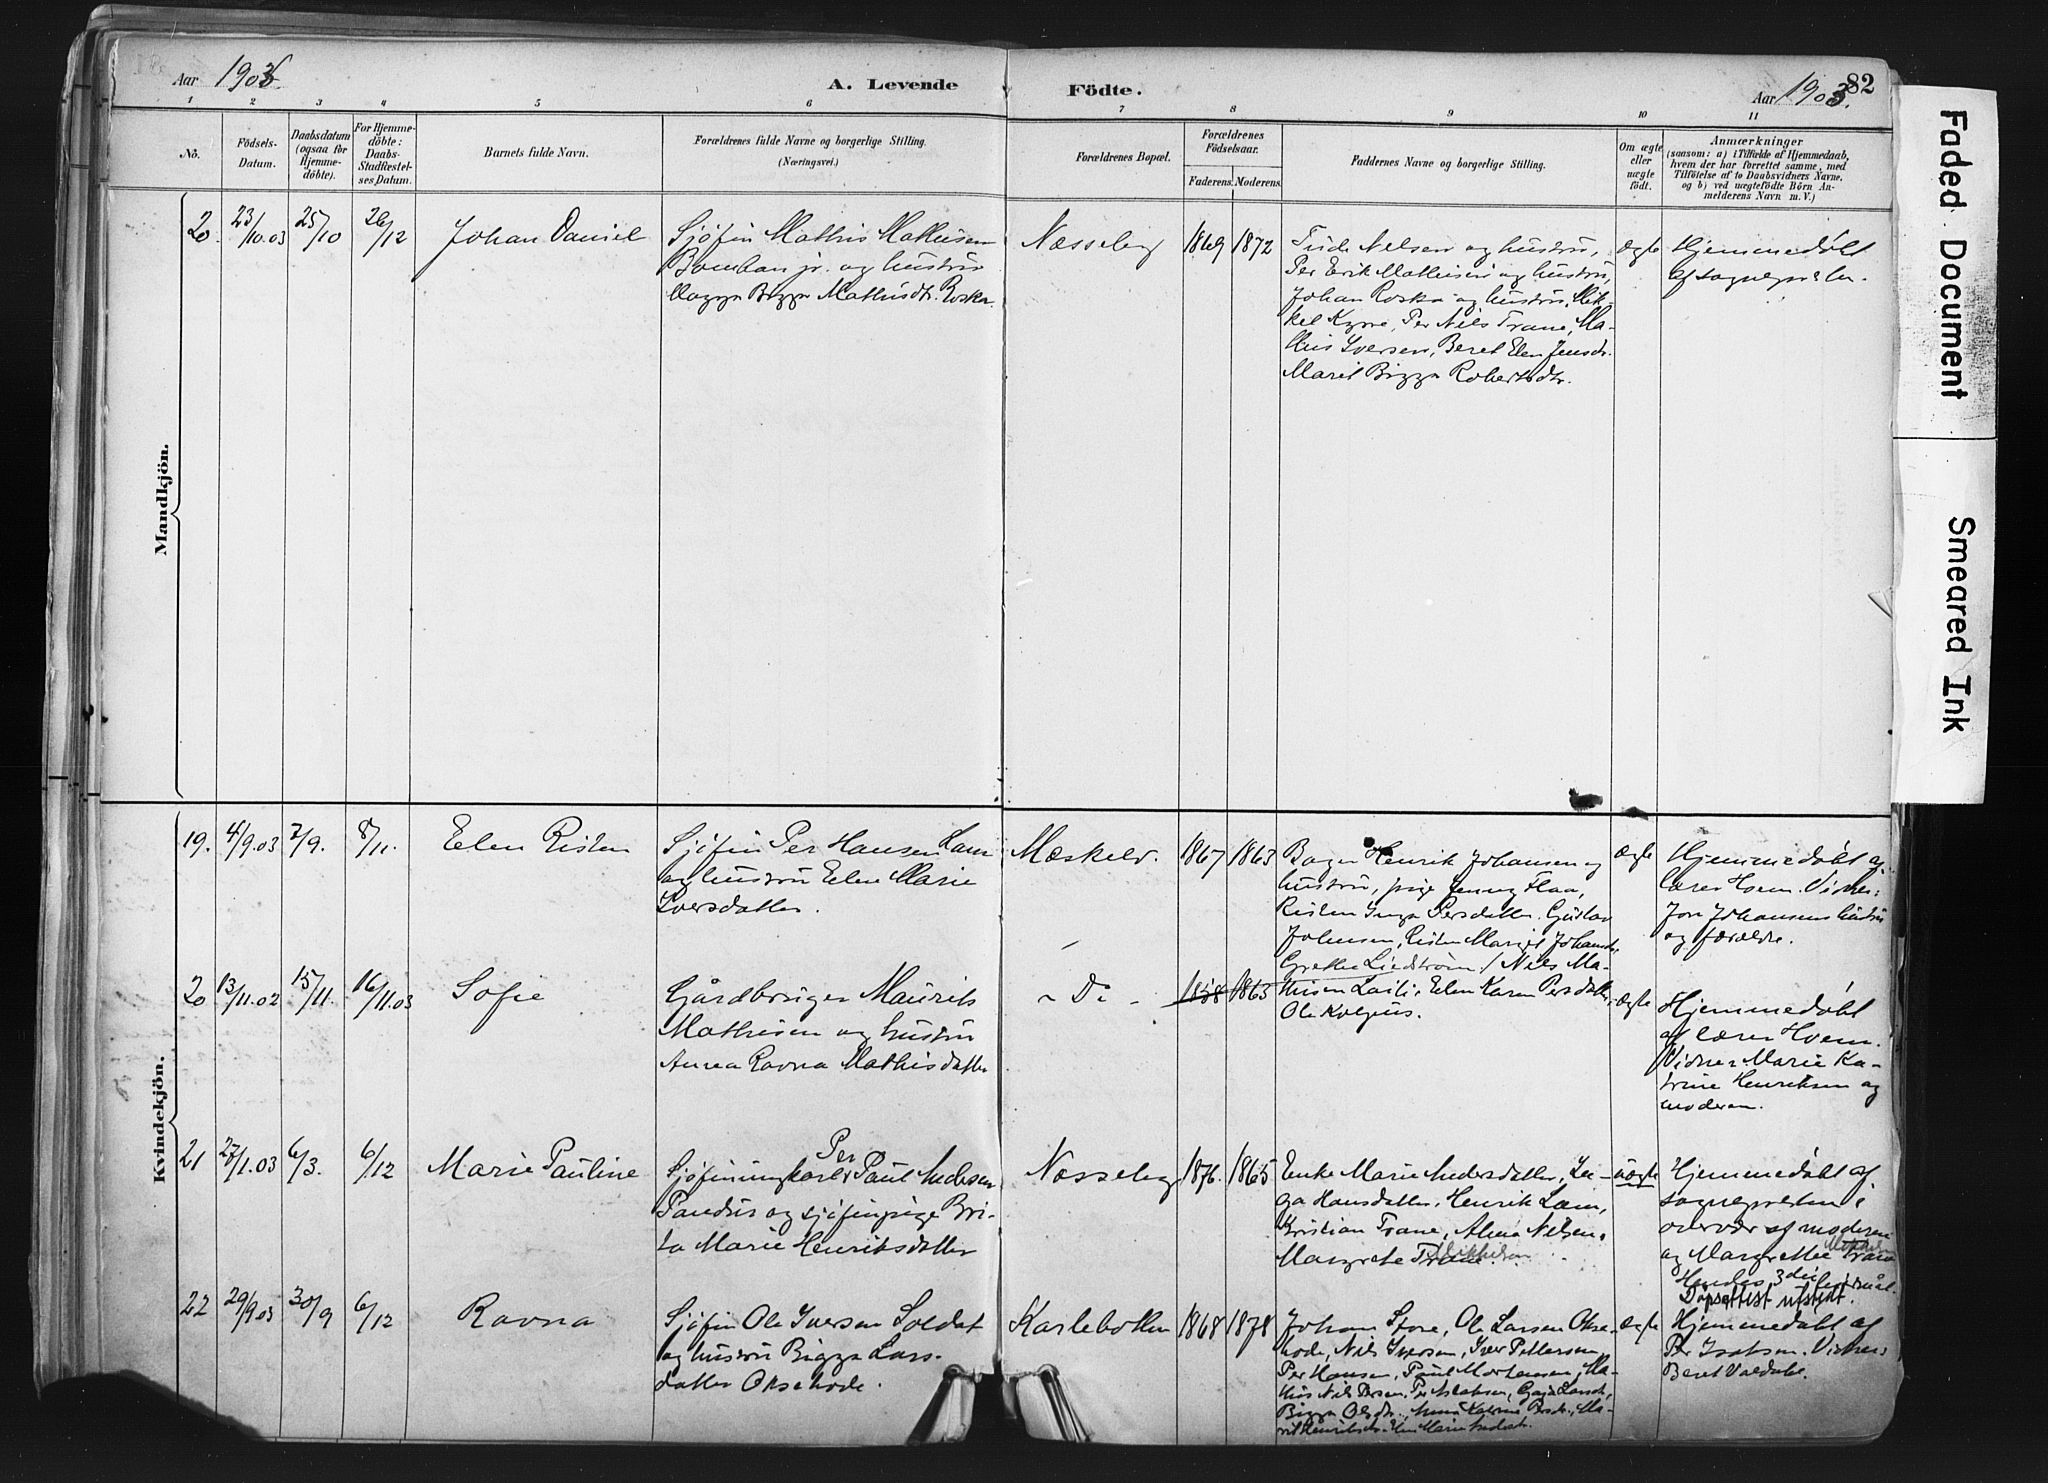 Aar 1903
A. Levende
Födte.
Aar 1903.
82
1 2 3 4 5 6 7 8 9 10 11
No.
Födsels-
Datum.
Daabsdatum
(ogsaa for
Hjemme-
döbte).
For Hjemme-
döbte:
Daabs-
Stadfæstel-
ses Datum.
Barnets fulde Navn.
Forældrenes fulde Navne og borgerlige Stilling.
(Næringsvei.)
Forældrenes Bopæl.
Forældrenes
Födselsaar.
Faderens. Moderens.
Faddernes Navne og borgerlige Stilling.
Om ægte
eller
uægte
født.
Anmærkninger
(saasom: a) i Tilfælde af Hjemmedaab,
hvem der har forrettet samme, med
Tilföielse af to Daabsvidners Navne,
og b) ved uægtefödte Börn An-
melderens Navn m. V.)
Mandkjön.
20. 23/10.03 25/10 26/12 Johan Daniel
Sjøfin Mathis Mathisen
og hustru
Magga Bigga Mathisdtr. Roska.
Næsseby 1869 1872
Nilsen og hustru,
Per Erik Mathisen og hustru,
Johan Roska og hustru, Mik-
kel Kyrre, Per Nils Trane, Ma-
this Iversen, Beret Elen Jensdtr.
Marit Bigga Robertsdtr.
ægte
Hjemmedøbt
af sognepresten.
Kvindekjön.
19. 4/9.03 7/9. 8/11. Elen Risten
Sjøfin Per Hansen
og hustru Elen Marie
Iversdatter.
Mæskelv. 1867 1863
Henrik Johansen og
hustru, pige Jenny Flaa,
Risten Inga Persdatter. Gustav
Johnsen, Risten Margit Johansdtr,
Grethe Liedstrøm / Nils Ma-
ægte
Hjemmedøbt af
lærer Hoem. Vidner:
Jon Johansens hustru
og forældre.
20 13/11.02 15/11. 16/11.03 Sofie
Gårdbruger Maurits
Mathisen og hustru
Anna Ravna Mathisdatter
- Do - 1858 1865
thisen Laiti, Elen Karen Persdatter,
Ole
ægte
Hjemmedøbt
af lærer Hoem.
Vidner: Marie Ka-
trine Henriksen og
moderen.
21 27/1.03 6/3. 6/12 Marie Pauline
Per
Sjøfinungkarl Paul Andersen
og sjøfinpige Bri-
ta Marie Henriksdatter
Næsseby 1876. 1865
Enke Marie Andersdatter,
Hansdatter, Henrik
Kristian Trane, Nilsen,
Margrete Trane Mikkelsen.
uægte
Hjemmedøbt af
sognepresten i
overvær af moderen
og Margrethe Trane
Hendes 3die leiermål.
Dåpsattest utstedt.
22 29/9.03 30/9 6/12 Ravna
Sjøfin Ole Iversen Soldat
og hustru Bigga Lars-
datter Oksehode.
Karlebotten 1868 1878
Johan Store, Ole Larsen Okse-
hode, Nils Iversen, Iver Pettersen,
Per Hansen, Paul Mortensen, Ma-
this Nils Persen, Per
Bigga Olsdtr., Anna Katrine Persdtr., Ma-
rit Henriksdtr. Marie
ægte
Hjemmedøbt af
Per Isaksen. Vidner:
Beret
Faded Document
Smeared Ink